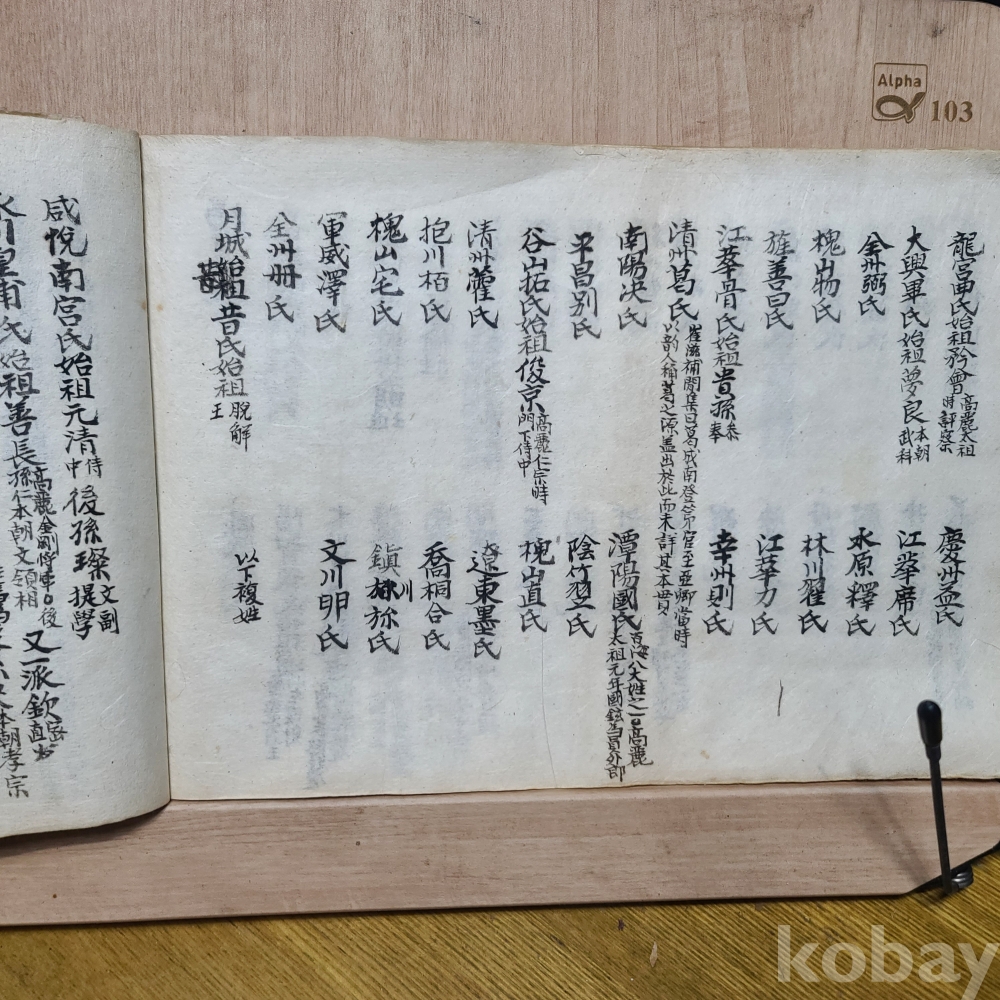 Alpha
103
龍宮甬氏始祖矜曾高麗太祖時評察
慶州益氏
大興畢氏始祖夢良本朝武科
江華席氏
金州弼氏
水原釋氏
槐山物氏
林川翟氏
旌善曰氏
江華力氏
江華骨氏始祖貴孫參奉
幸州則氏
清州葛氏崔滋補閑集曰葛成南登第官至亞卿當時以韵人稱葛之源盖出於此而未詳其本貫
南陽决氏
潭陽國氏百済八大姓之一曰高麗太祖元年國鉉爲員外郎
平昌別氏
陰竹邕氏
谷山拓氏始祖俊京高麗仁宗時門下侍中
槐山直氏
清州藿氏
遼東墨氏
抱川栢氏
喬桐合氏
槐山宅氏
鎮川祢氏
軍威澤氏
文川卵氏
全州册氏
月城始祖昔氏始祖脫解王
以下複姓
咸悅南宮氏始祖元清侍中後孫璨文副提學
永川皇甫氏始祖善長高麗金剛將軍後孫仁本朝文領相又一派欽
本朝孝宗
kobay